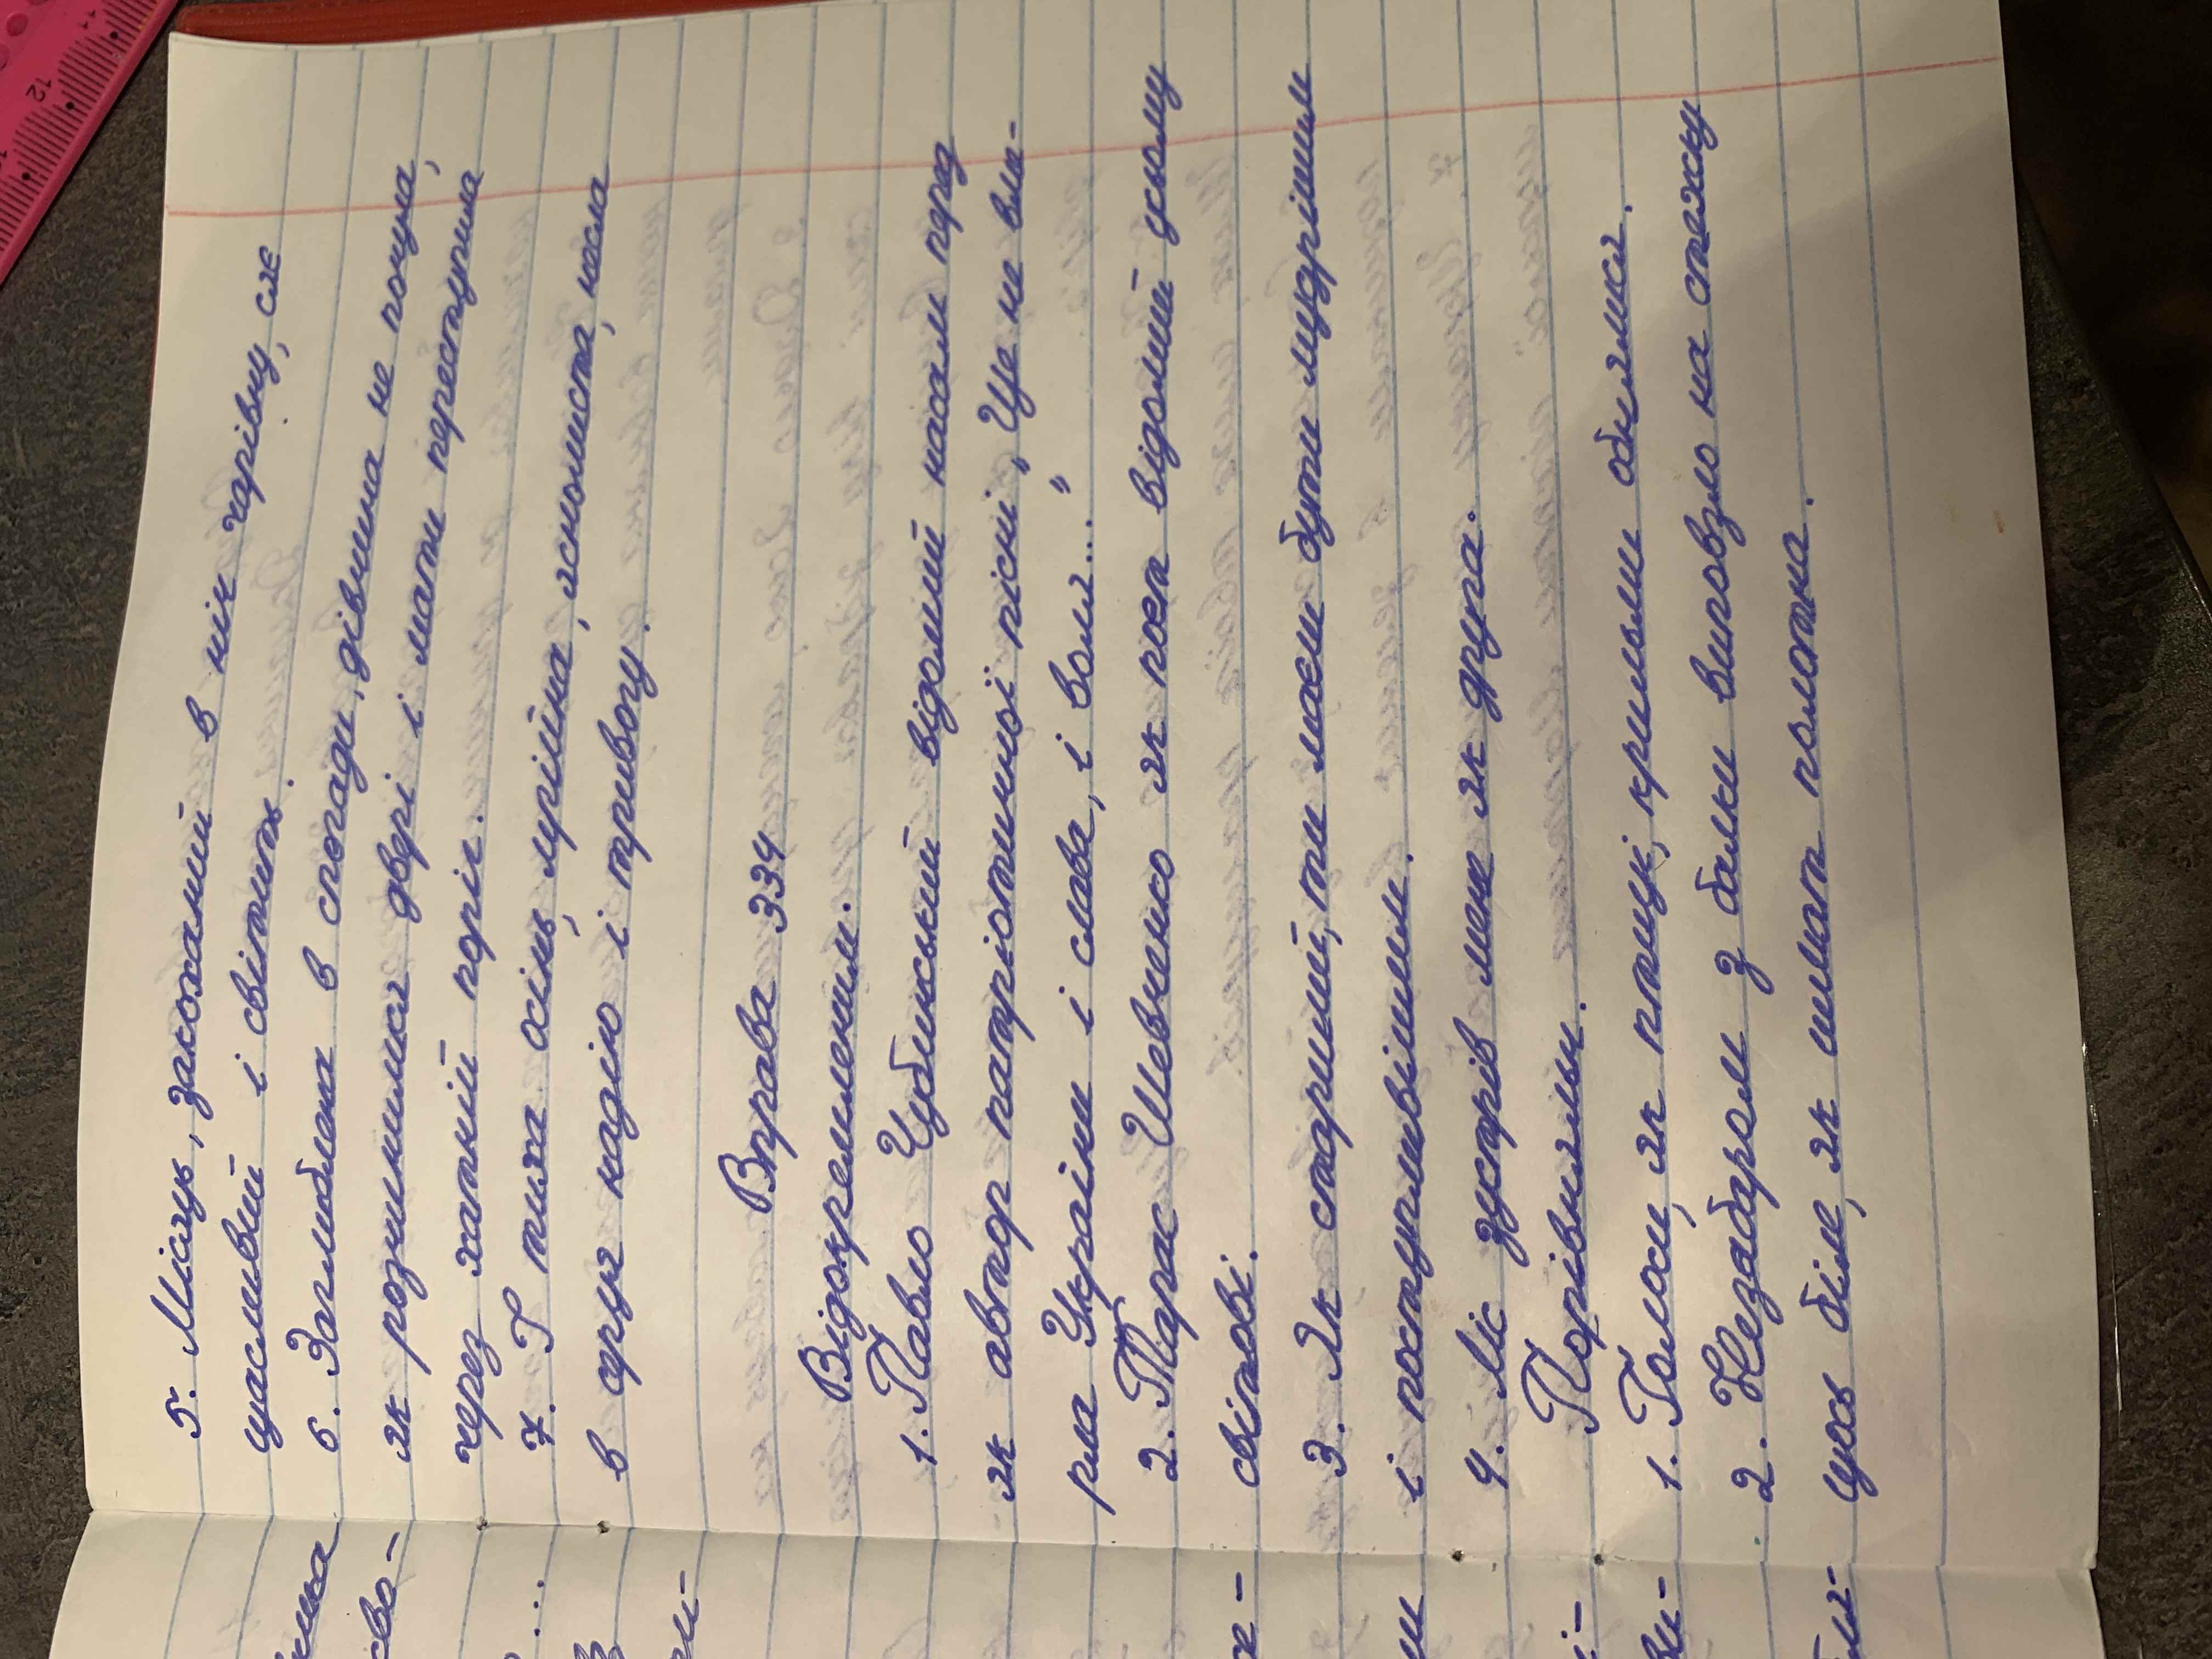 5. Місяць, закоханий в ніч чарівну, сяє
щасливий і світить.
6. Заглиблена в спогади, дівчина не почула,
як розчинилися двері і мати переступила
через хатній поріг.
7. І тиха осінь, мрійна, яснолиста, несла
в серце надію і тривогу.
Вправа 334
Відокремлених.
1. Павло Чубинський відомий насам перед
як автор патріотичної пісні „Ще не вме-
рла Україна і слава, і воля..."
2. Тарас Шевченко як поет відомий усьому
світові.
3. Як старший, ти маєш бути мудрішим
і поступливішим.
4. Ліс зустрів мене як друга.
Порівняльн.
1. Голоси, як птиці, крильми обнялися.
2. Незабаром з балки виповзло на стежку
щось біле, як шмат полотна.
12
11